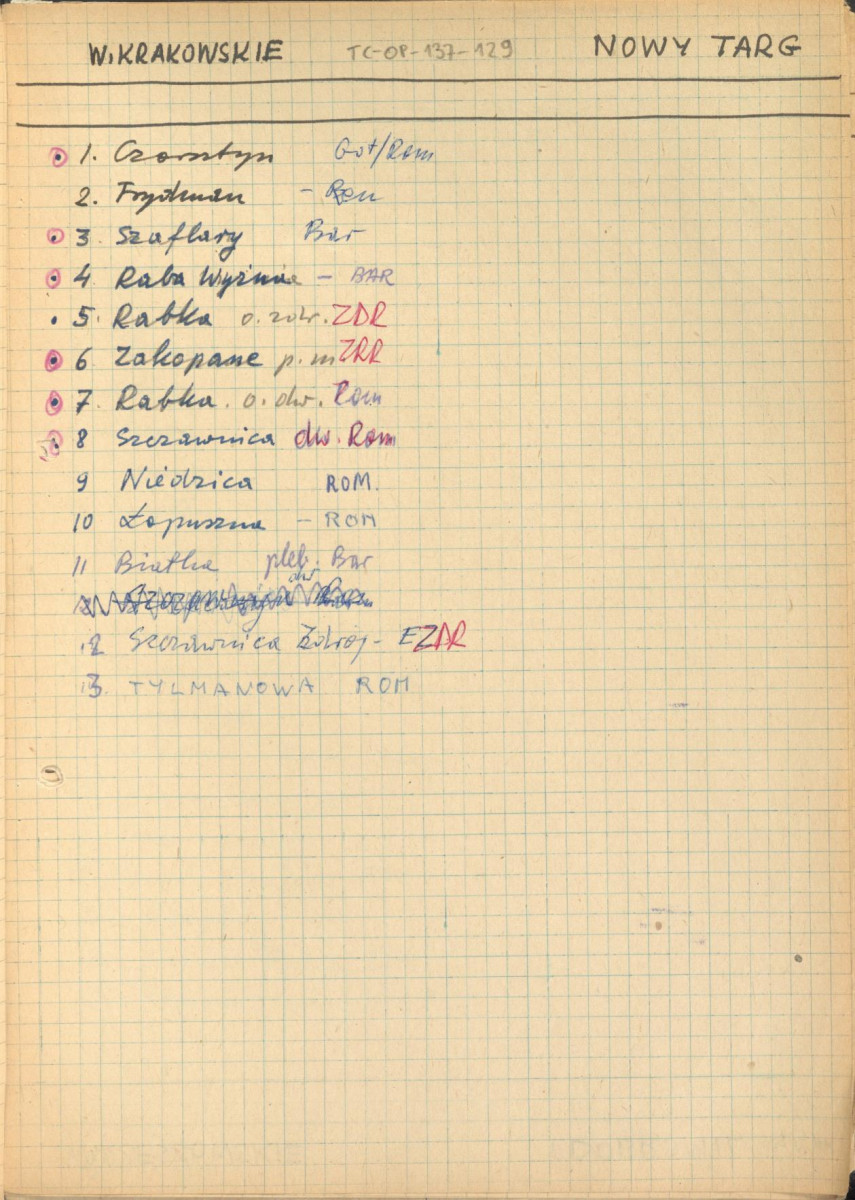 W. KRAKOWSKIE TC-OP-137-129 NOWY TARG
1. Czorsztyn Got/Rom
2. Frydman - Ren
3 Szaflary Bar
4 Raba Wyżna - BAR
5. Rabka o. zdr. ZDR
6 Zakopane p. m ZRR
7. Rabka o. dw. Rom
8 Szczawnica dw. Rom
9 Niedzica ROM.
10 Łopuszna - ROM
11 Białka pleb. Bar
dw
12 Szczawnica Zdrój - EZDR
13. TYLMANOWA ROM